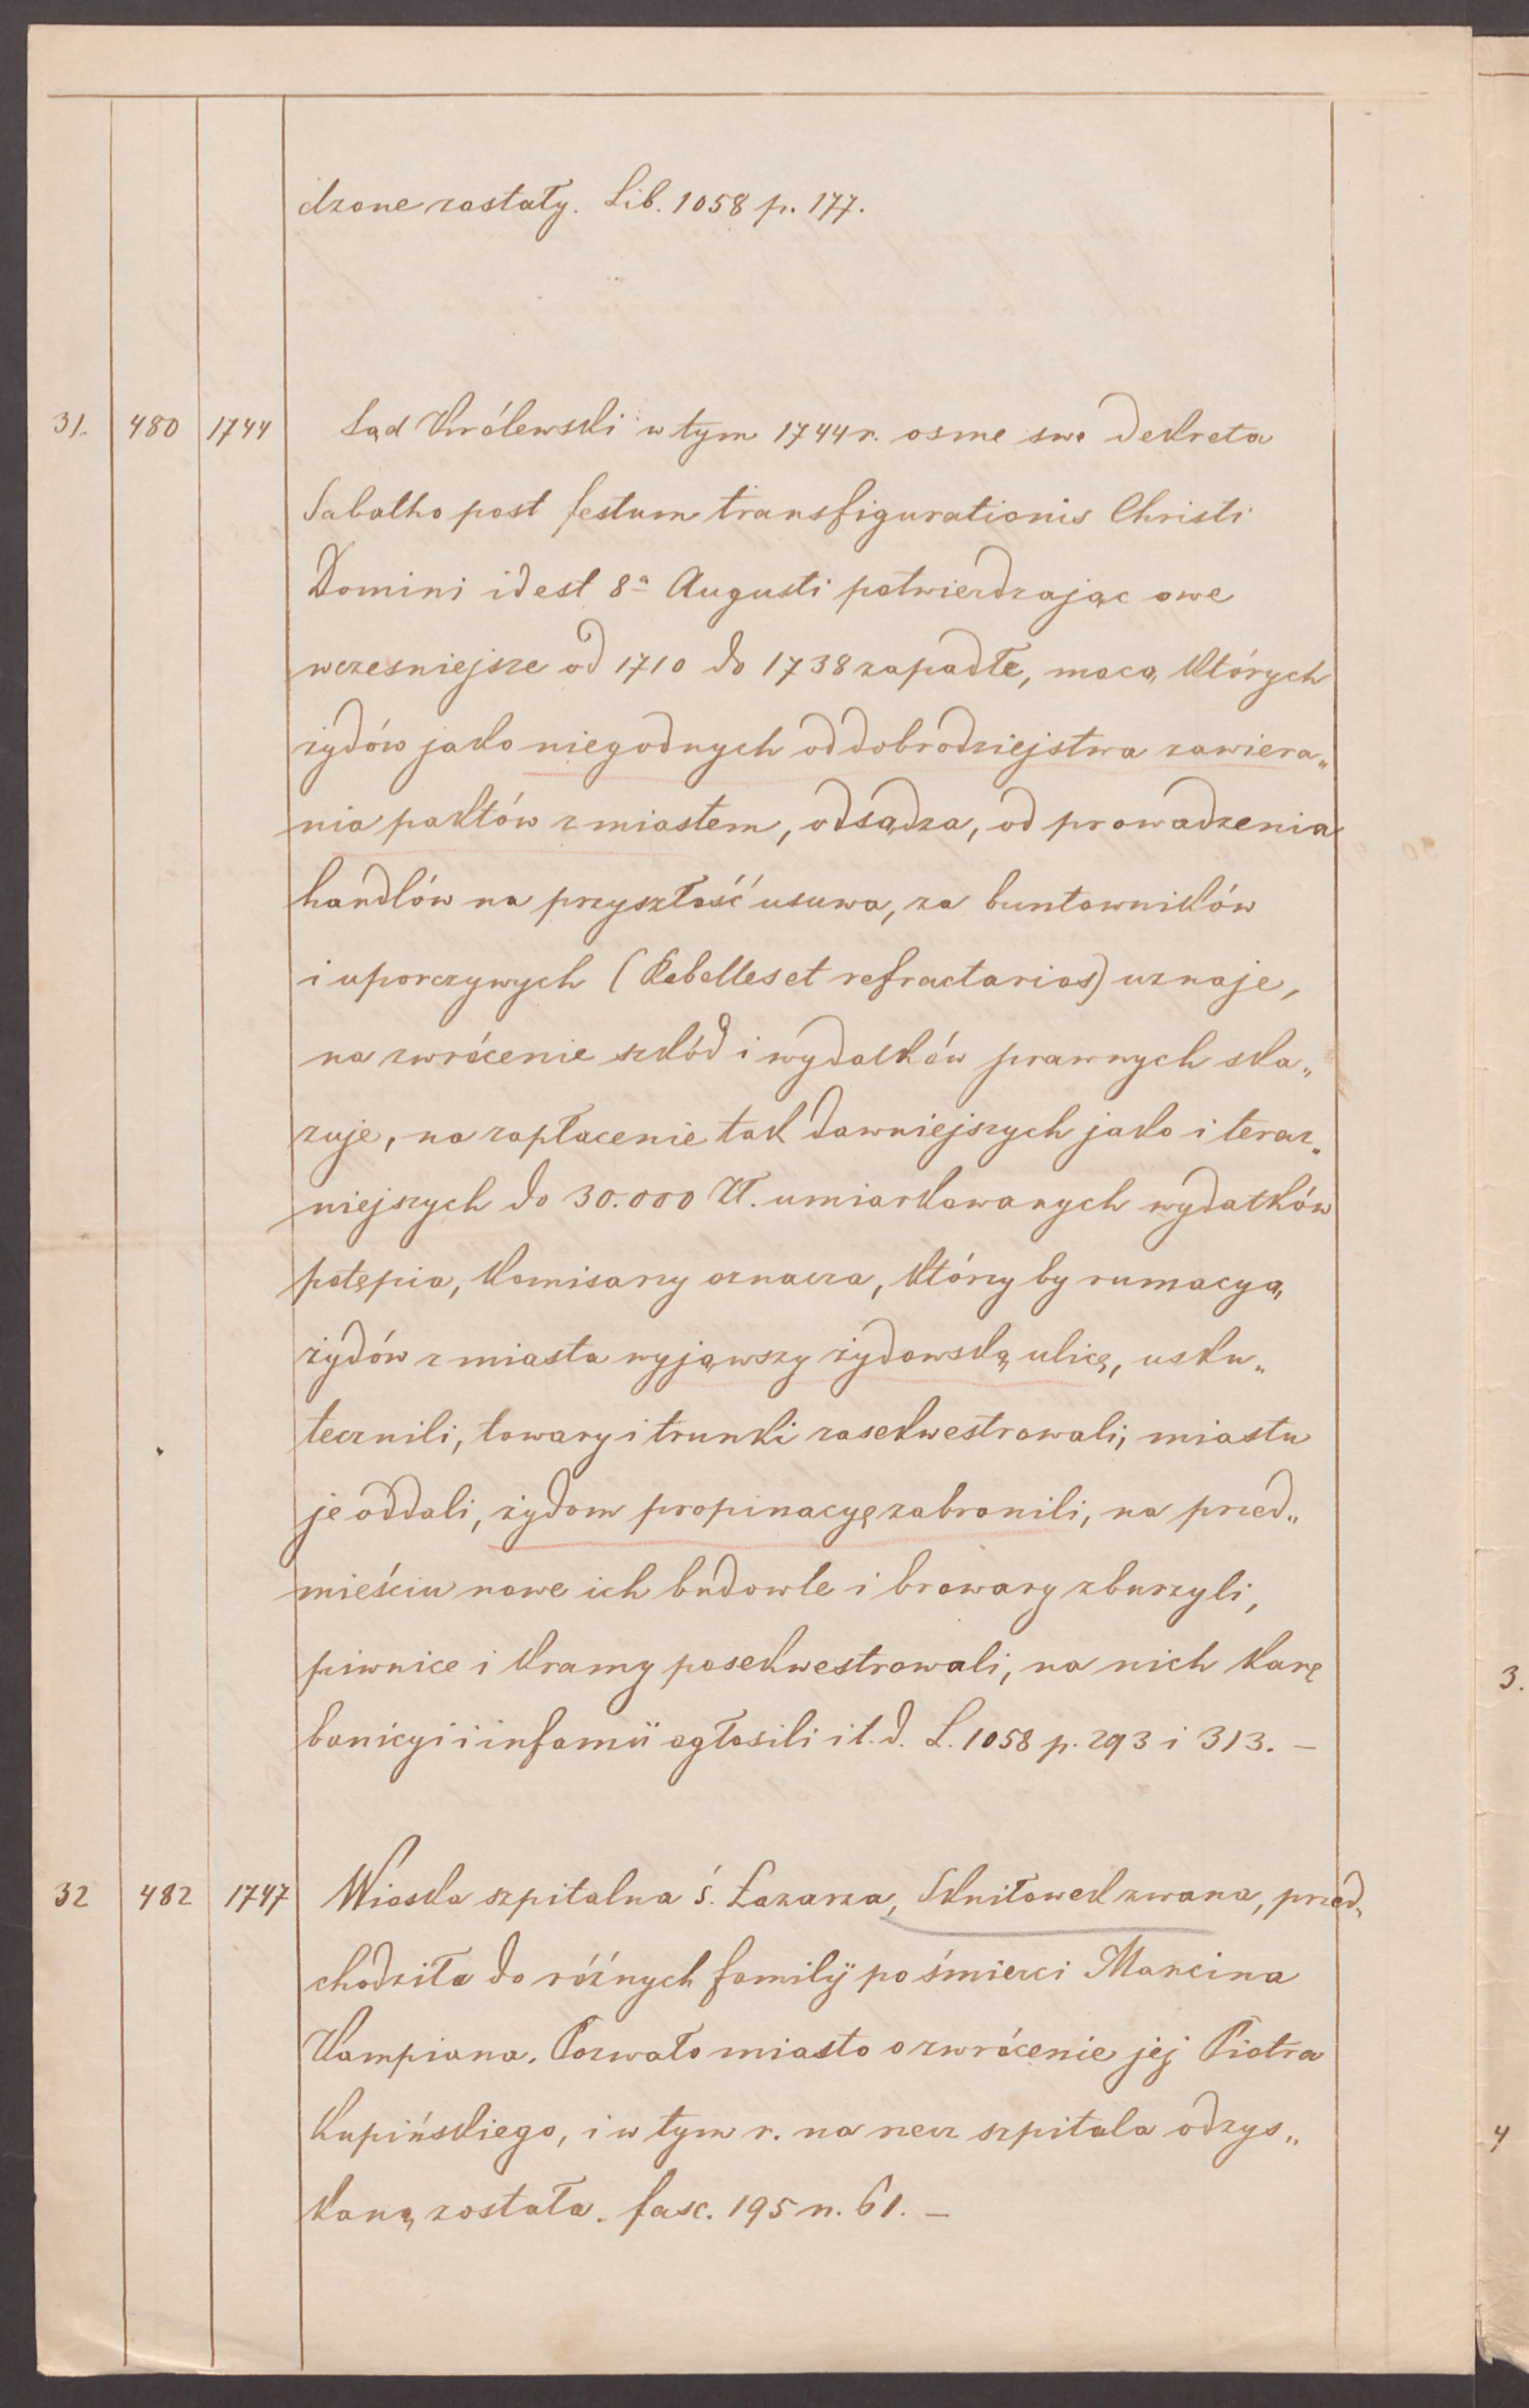 dzone zostały. Lib. 1058 p. 177.
31. 480 1744 Sąd Królewski w tym 1744 r. osme swe dekreta
Sabatho post festum transfigurationis Christi
Domini idest 8ª Augusti potwierdzając owe
wczesniejsze od 1710 do 1738 zapadłe, mocą których
żydów jako niegodnych od dobrodziejstwa zawiera„
nia paktów z miastem, odsądza, od prowadzenia
handlów na przyszłość usuwa, za buntowników
i uporczywych (Rebelles et refractarios) uznaje,
na zwrócenie szkód i wydatków prawnych ska„
zuje, na zapłacenie tak dawniejszych jako i teraz„
niejszych do 30.000 Zł. umiarkowanych wydatków
potępia, Komisarzy oznacza, którzy by rumacyą
żydów z miasta wyjąwszy żydowską ulicę, usku„
tecznili, towary i trunki zasekwestrowali, miastu
je oddali, żydom propinacyę zabronili, na przed„
mieściu nowe ich budowle i browary zburzyli,
piwnice i kramy posekwestrowali, na nich karę
banicyi i infamii ogłosili i t. d. L. 1058 p. 293 i 313. —
32 482 1747 Wioska szpitalna ś. Łazarza, Skniłowek zwana, przed„
chodziła do różnych familij po śmierci Marcina
Kampiana. Pozwało miasto o zwrócenie jej Piotra
Kupińskiego, i w tym r. na rzecz szpitala odzys„
kaną została. fasc. 195 n. 61. —
3.
4